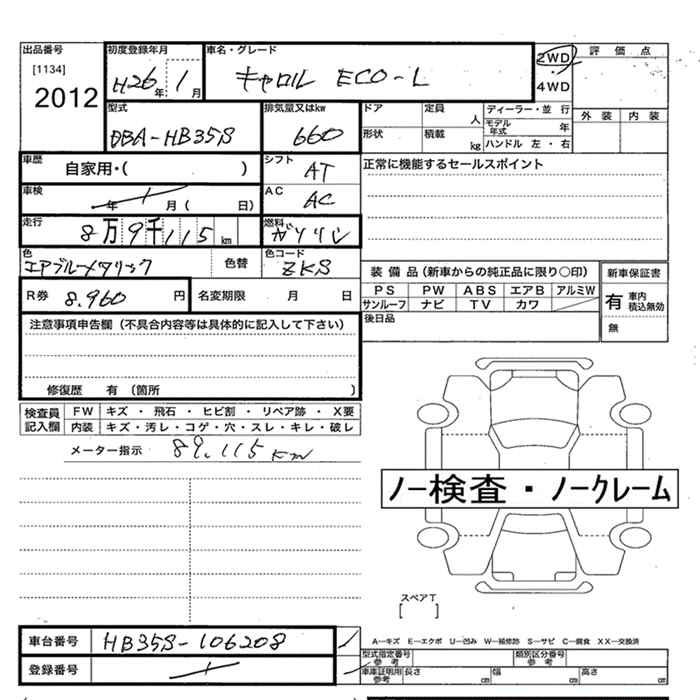 出品番号
[1134]
2012
初度登録年月
H26年 1月
車名・グレード
キャロル ECO-L
2WD
4WD
評価点
外装 内装
型式
DBA-HB35S
排気量又はkw
660
ドア
定員 人
形状
積載 kg
ディーラー・並行
モデル年式 年
ハンドル 左・右
車歴
自家用・( )
シフト
AT
正常に機能するセールスポイント
車検
年 月( 日)
AC
AC
走行
8万9千115km
燃料
ガソリン
色
エアブルーメタリック
色替
色コード
ZKS
装備品(新車からの純正品に限り○印)
PS PW ABS エアB アルミW
サンルーフ ナビ TV カワ
新車保証書
有 車内積込無効
無
R券 8,960円
名変期限 月 日
後日品
注意事項申告欄(不具合内容等は具体的に記入して下さい)
修復歴 有 (箇所 )
検査員記入欄
FW キズ・飛石・ヒビ割・リペア跡・X要
内装 キズ・汚レ・コゲ・穴・スレ・キレ・破レ
メーター指示 89.115Km
ノー検査・ノークレーム
スペアT
[ ]
車台番号 HB35S-106208
登録番号
A―キズ E―エクボ U―凹み W―補修跡 S―サビ C―腐食 XX―交換済
型式指定番号 参考
類別区分番号 参考
車庫証明用 参考
長さ cm 幅 cm 高さ cm